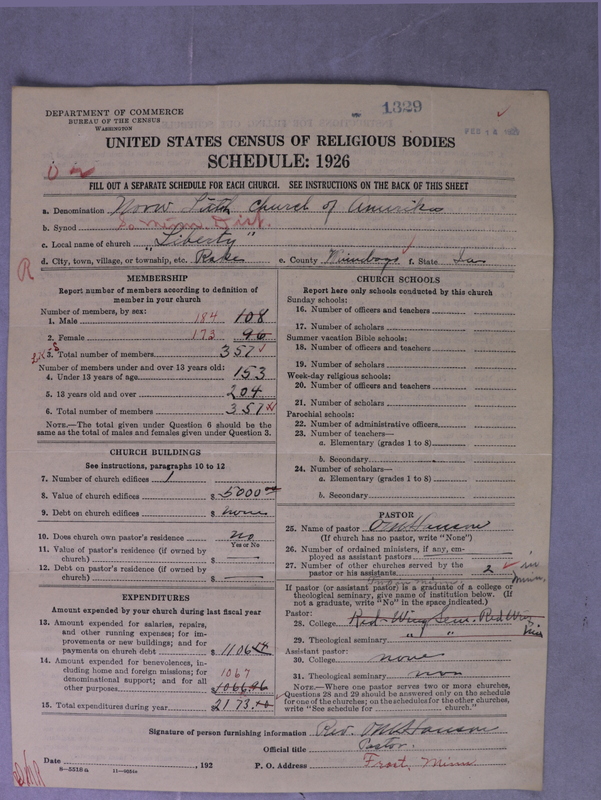 1329
DEPARTMENT OF COMMERCE
BUREAU OF THE CENSUS
WASHINGTON
UNITED STATES CENSUS OF RELIGIOUS BODIES
SCHEDULE: 1926
FILL OUT A SEPARATE SCHEDULE FOR EACH CHURCH. SEE INSTRUCTIONS ON THE BACK OF THIS SHEET
a. Denomination Norw Luth Church of Amerika
b. Synod So Minn Dist.
c. Local name of church "Liberty"
d. City, town, village, or township, etc. Rake e. County f. State Iowa
MEMBERSHIP
Report number of members according to definition of
member in your church
Number of members, by sex:
1. Male 184 108
2. Female 173 96
3. Total number of members 357
Number of members under and over 13 years old:
4. Under 13 years of age 153
5. 13 years old and over 204
6. Total number of members 357
NOTE.—The total given under Question 6 should be
same as the total of males and females given under Question 3.
CHURCH BUILDINGS
See instructions, paragraphs 10 to 12
7. Number of church edifices 1
8. Value of church edifices $ 5000 00
9. Debt on church edifices $ none
10. Does church own pastor's residence no
Yes or No
11. Value of pastor's residence (if owned by
church) $
12. Debt on pastor's residence (if owned by
church) $
EXPENDITURES
Amount expended by your church during last fiscal year
13. Amount expended for salaries, repairs,
and other running expenses; for im-
provements or new buildings; and for
payments on church debt $ 1106
14. Amount expended for benevolences, in-
cluding home and foreign missions; for
denominational support; and for all
other purposes 1067 $ 1066.96
15. Total expenditures during year $ 2173
CHURCH SCHOOLS
Report here only schools conducted by this church
Sunday schools:
16. Number of officers and teachers
17. Number of scholars
Summer vacation Bible schools:
18. Number of officers and teachers
19. Number of scholars
Week-day religious schools:
20. Number of officers and teachers
21. Number of scholars
Parochial schools:
22. Number of administrative officers
23. Number of teachers—
a. Elementary (grades 1 to 8)
b. Secondary
24. Number of scholars—
a. Elementary (grades 1 to 8)
b. Secondary
PASTOR
25. Name of pastor O M Hanson
(If church has no pastor, write "None")
26. Number of ordained ministers, if any, em-
ployed as assistant pastors
27. Number of other churches served by the
pastor or his assistants 2 in Minn.
If pastor (or assistant pastor) is a graduate of a college or
theological seminary, give name of institution below. (If
not a graduate, write "No" in the space indicated.)
Pastor:
28. College Red Wing Sem. Red Wing
Minn
29. Theological seminary " "
Assistant pastor:
30. College none
31. Theological seminary non
NOTE.—Where one pastor serves two or more churches,
Questions 28 and 29 should be answered only on the schedule
for one of the churches; on the schedules for the other churches,
write "See schedule for church."
Signature of person furnishing information Rev. O M Hanson
Official title Pastor.
Date , 192 P. O. Address Frost, Minn
8—5518a 11—9051a